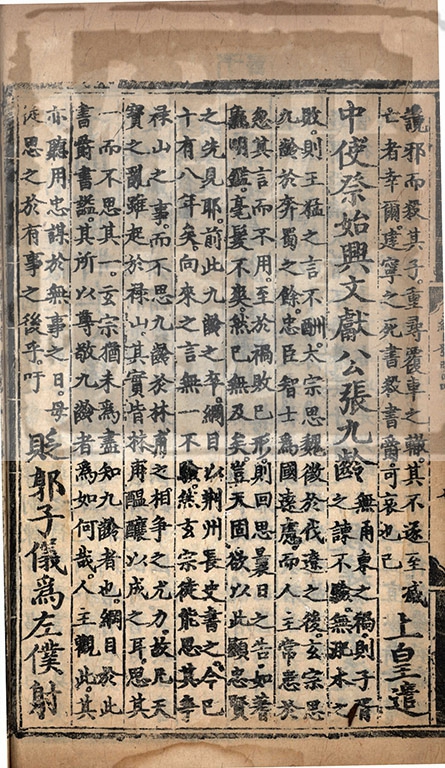 說邪而殺其子重尋覆車之轍其不遂至滅
亡者幸爾建寧之死書殺書爵可哀也已
上皇遣
中使祭始興文獻公張九齡
無甬東之禍則子胥
之諫不驗無淝水之
敗則王猛之言不酬太宗思魏徵於伐遼之後玄宗思
九齡於奔蜀之餘忠臣智士為國遠慮而人主常患於
忽其言而不用至於禍敗已形則回思曩日之告如蓍
龜明鑑毫髮不爽然已無及矣豈天固欲以此顯忠賢
之先見耶前此九齡之卒綱目以荆州長史書之今已
十有八年矣向來之言無一不驗然玄宗徒能思其爭
祿山之事而不思九齡於林甫之相爭之尤力故凡天
寶之亂雖起於祿山其實皆林甫醞釀以成之耳思其
一而不思其一玄宗猶未為盡知九齡者也綱目於此
書爵書謚其所以尊敬九齡者為如何哉人主觀此其
亦聽用忠謀於無事之日毋
徒思之於有事之後乎吁
貶郭子儀為左僕射